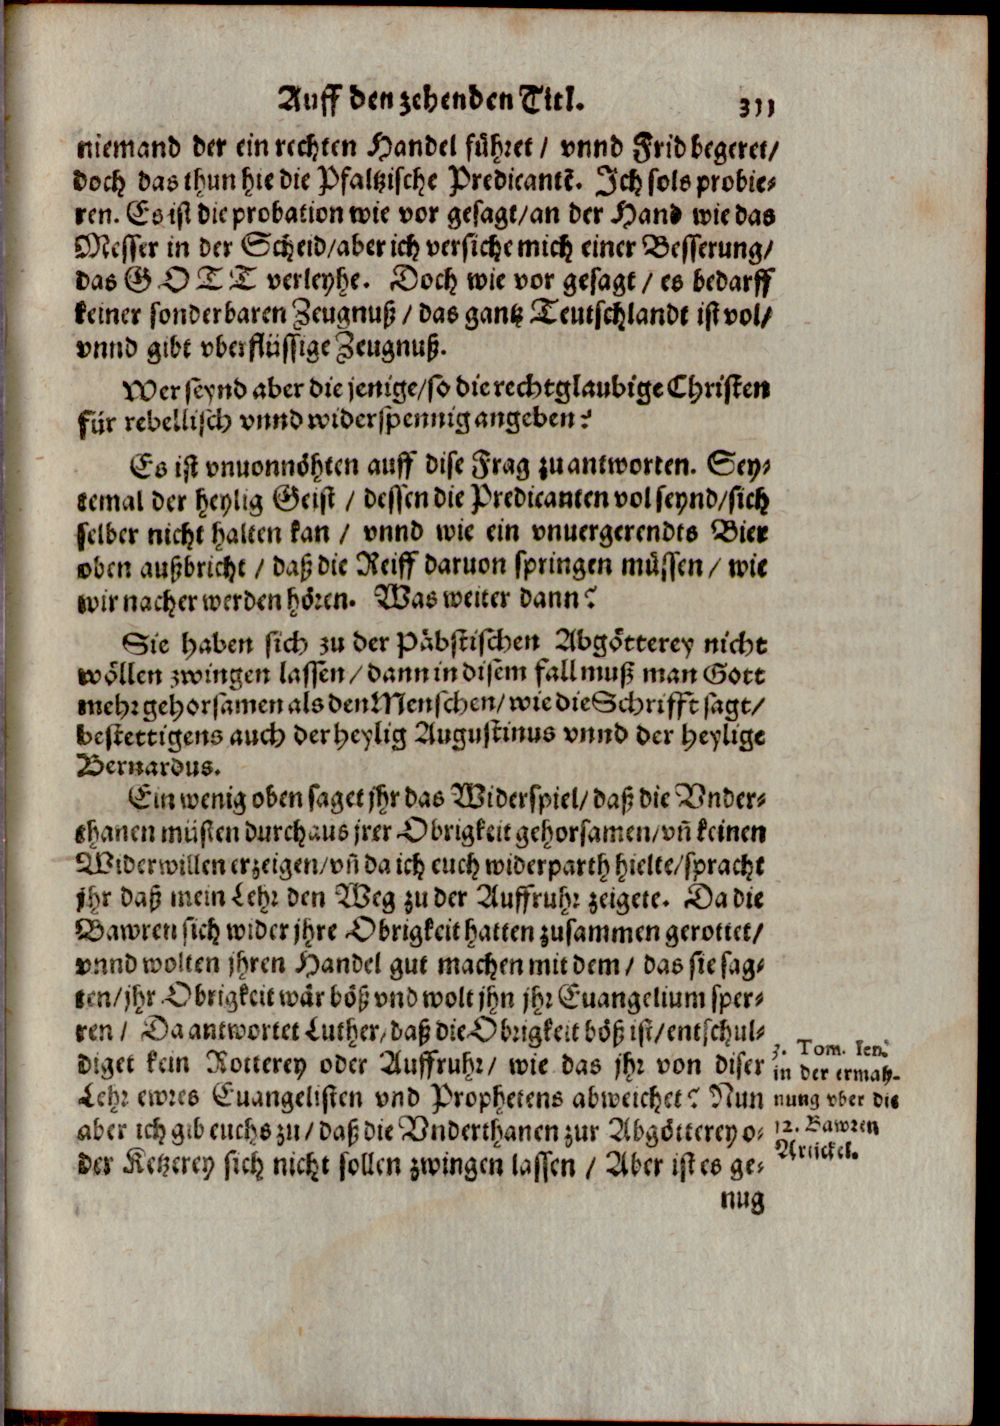 Auff den zehenden Titl. 311
niemand der ein rechten Handel führet / vnnd Frid begeret/
doch das thun hie die Pfaltzische Predicantẽ. Ich sols probie-
ren. Es ist die probation wie vor gesagt/an der Hand wie das
Messer in der Scheid/aber ich versiche mich einer Besserung/
das GOTT verleyhe. Doch wie vor gesagt / es bedarff
keiner sonderbaren Zeugnuß / das gantz Teutschlandt ist vol/
vnnd gibt vberflüssige Zeugnuß.
Wer seynd aber die jenige/so die rechtglaubige Christen
für rebellisch vnnd widerspennig angeben?
Es ist vnuonnöhten auff dise Frag zu antworten. Sey-
temal der heylig Geist / dessen die Predicanten vol seynd/sich
selber nicht halten kan / vnnd wie ein vnuergerendts Bier
oben außbricht / daß die Reiff daruon springen müssen / wie
wir nacher werden hören. Was weiter dann?
Sie haben sich zu der Päbstischen Abgötterey nicht
wöllen zwingen lassen / dann in disem fall muß man Gott
mehr gehorsamen als den Menschen/ wie die Schrifft sagt/
bestettigens auch der heylig Augustinus vnnd der heylige
Bernardus.
Ein wenig oben saget jhr das Widerspiel/ daß die Vnder-
thanen müsten durchaus jrer Obrigkeit gehorsamen/vñ keinen
Widerwillen erzeigen/vñ da ich euch widerparth hielte/spracht
jhr daß mein Lehr den Weg zu der Auffruhr zeigete. Da die
Bawren sich wider jhre Obrigkeit hatten zusammen gerottet/
vnnd wolten jhren Handel gut machen mit dem / das sie sag-
ten/jhr Obrigkeit wär böß vnd wolt jhn jhr Euangelium sper-
ren / Da antwortet Luther, daß die Obrigkeit böß ist/entschul-
diget kein Rotterey oder Auffruhr/ wie das jhr von diser
Lehr ewres Euangelisten vnd Prophetens abweichet? Nun
aber ich gib euchs zu / daß die Vnderthanen zur Abgötterey o-
der Ketzerey sich nicht sollen zwingen lassen / Aber ist es ge-
nug
3. Tom. Ien.
in der ermah-
nung vber die
12. Bawren
Artickel.